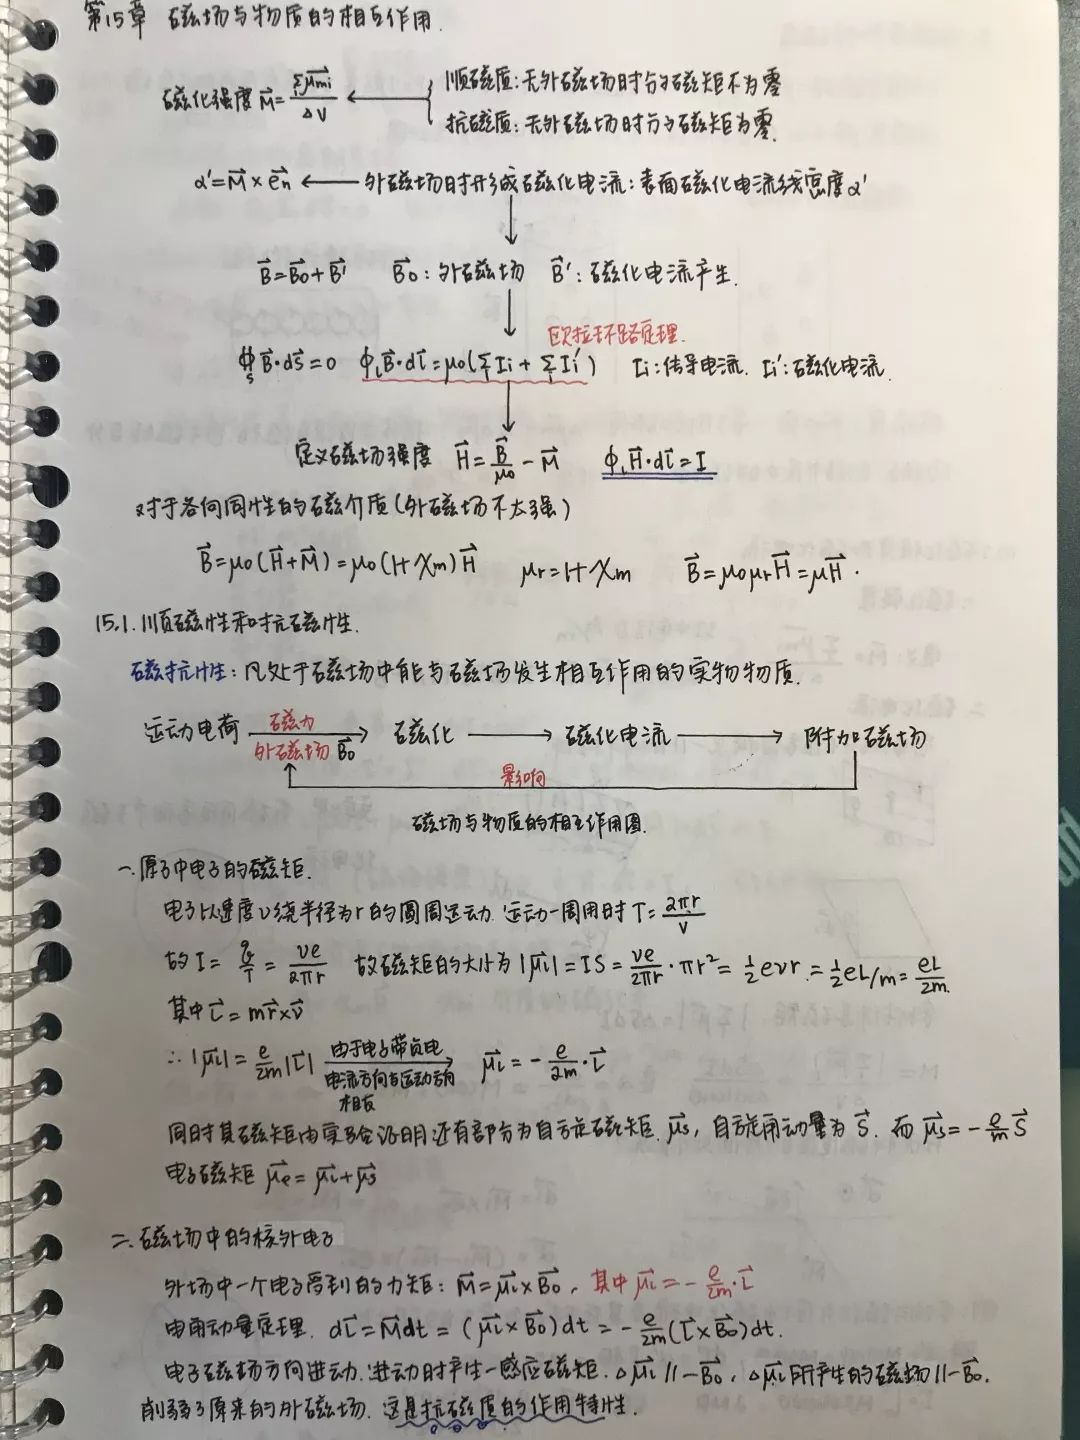 第15章 磁场与物质的相互作用.
磁化强度 M⃗ = Σμ⃗mi / ΔV ← { 顺磁质:无外磁场时分子磁矩不为零
抗磁质:无外磁场时分子磁矩为零.
α' = M⃗ × e⃗n ← 外磁场时形成磁化电流:表面磁化电流线密度α'
B⃗ = B⃗0 + B⃗' B⃗0:外磁场 B⃗':磁化电流产生.
欧拉环路定理.
∮s B⃗·dS⃗ = 0 ∮L B⃗·dl⃗ = μ0(ΣIi + ΣIi') Ii:传导电流. Ii':磁化电流.
定义磁场强度 H⃗ = B⃗/μ0 - M⃗ ∮L H⃗·dl⃗ = I
对于各向同性的磁介质(外磁场不太强)
B⃗ = μ0(H⃗ + M⃗) = μ0(1+χm)H⃗ μr = 1+χm B⃗ = μ0μrH⃗ = μH⃗.
15.1. 顺磁性和抗磁性.
磁抗性:凡处于磁场中能与磁场发生相互作用的实物物质.
运动电荷 磁力 外磁场 B⃗0 → 磁化 → 磁化电流 → 附加磁场
影响
磁场与物质的相互作用图.
一.原子中电子的磁矩.
电子以速度v绕半径为r的圆周运动.运动一周用时 T = 2πr/v
故 I = q/T = ve/2πr 故磁矩的大小为 |μ⃗l| = IS = ve/2πr · πr² = ½evr = ½eL/m = eL/2m.
其中 L⃗ = mr⃗×v⃗
∴ |μ⃗l| = e/2m |L⃗| 由于电子带负电 电流方向与运动方向相反 → μ⃗l = - e/2m · L⃗
同时其磁矩由实验证明还有部分为自旋磁矩. μ⃗s, 自旋角动量为 S⃗. 而 μ⃗s = - e/m S⃗
电子磁矩 μ⃗e = μ⃗l + μ⃗s
二.磁场中的核外电子
外场中一个电子受到的力矩: M⃗ = μ⃗l × B⃗0, 其中 μ⃗l = - e/2m · L⃗
由角动量定理. dL⃗ = M⃗dt = (μ⃗l × B⃗0)dt = - e/2m (L⃗ × B⃗0)dt.
电子磁场方向进动.进动时产生一感应磁矩. Δμ⃗l // -B⃗0, Δμ⃗l 所产生的磁场 // -B⃗0.
削弱了原来的外磁场. 这是抗磁质的作用特性.